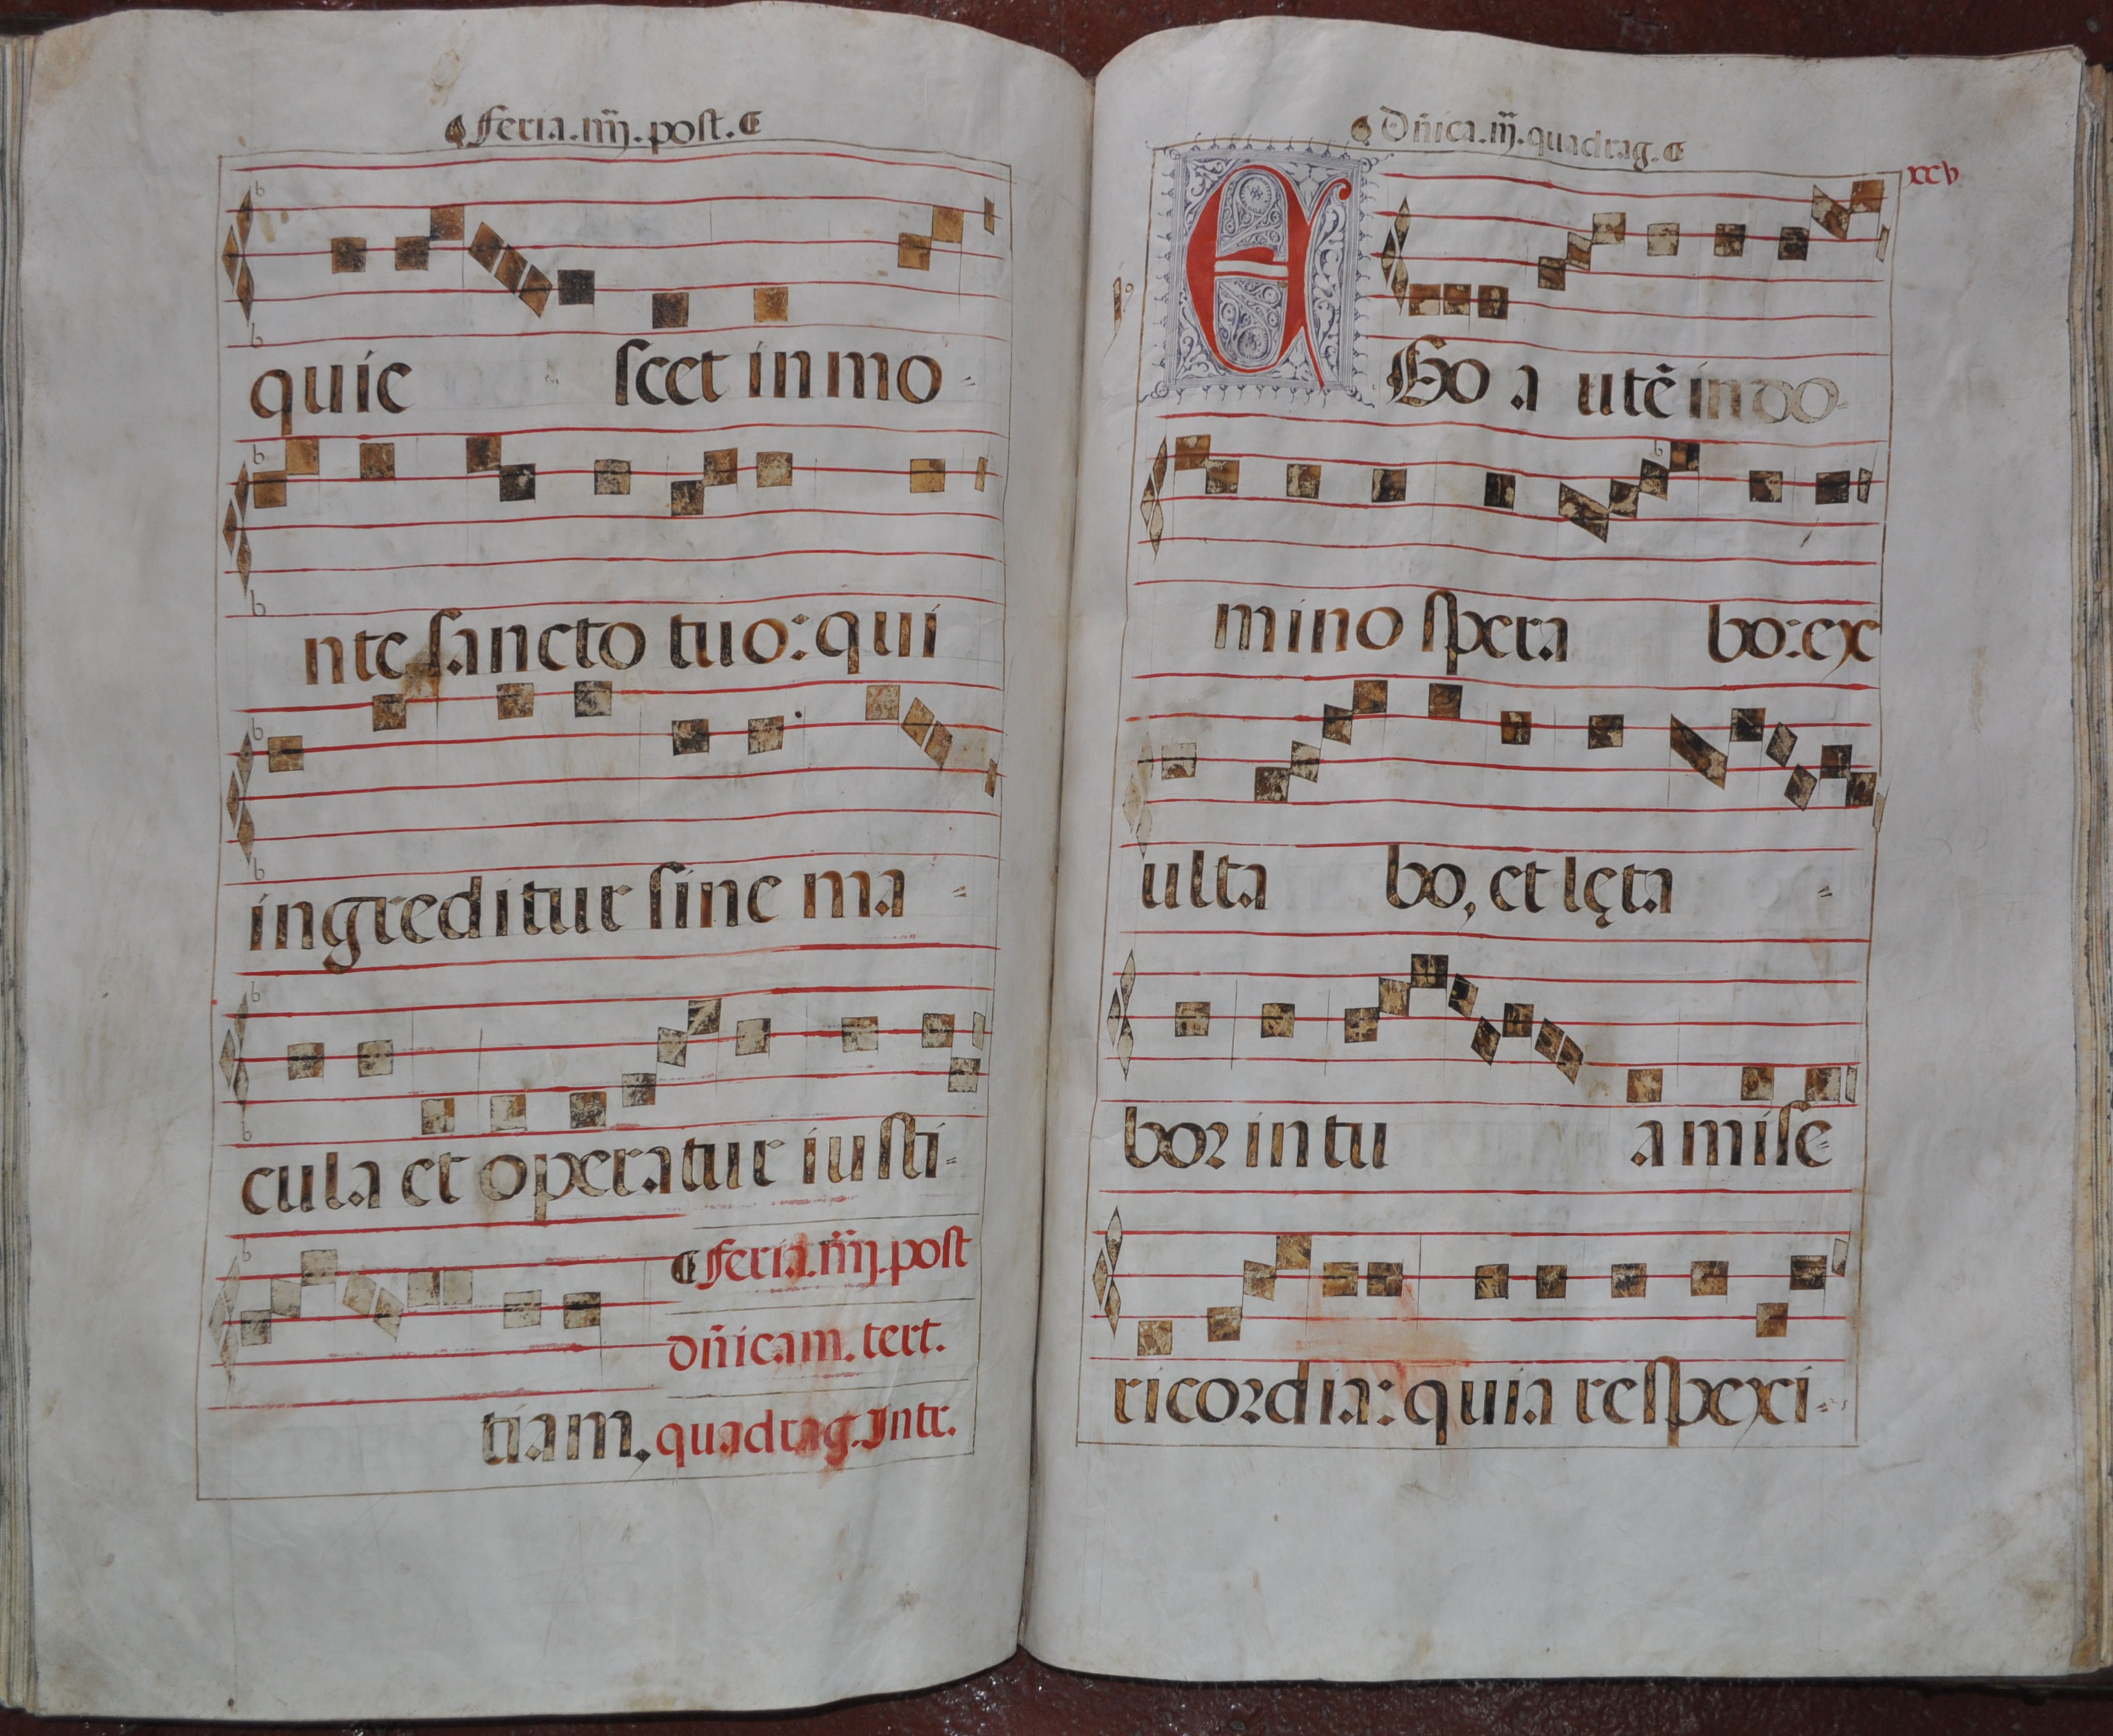 feria.iiij.post.
quie scet in mo-
nte sancto tuo: qui
ingreditur sine ma-
cula et operatur iusti-
tiam,
feria.iiij.post
dñicam.tert.
quadrag.Intr.
Dñica.iij.quadrag.
xxv
EGo a utē in do-
mino spera bo: ex
ulta bo, et lęta-
bor in tu a mise-
ricordia: quia respexi-